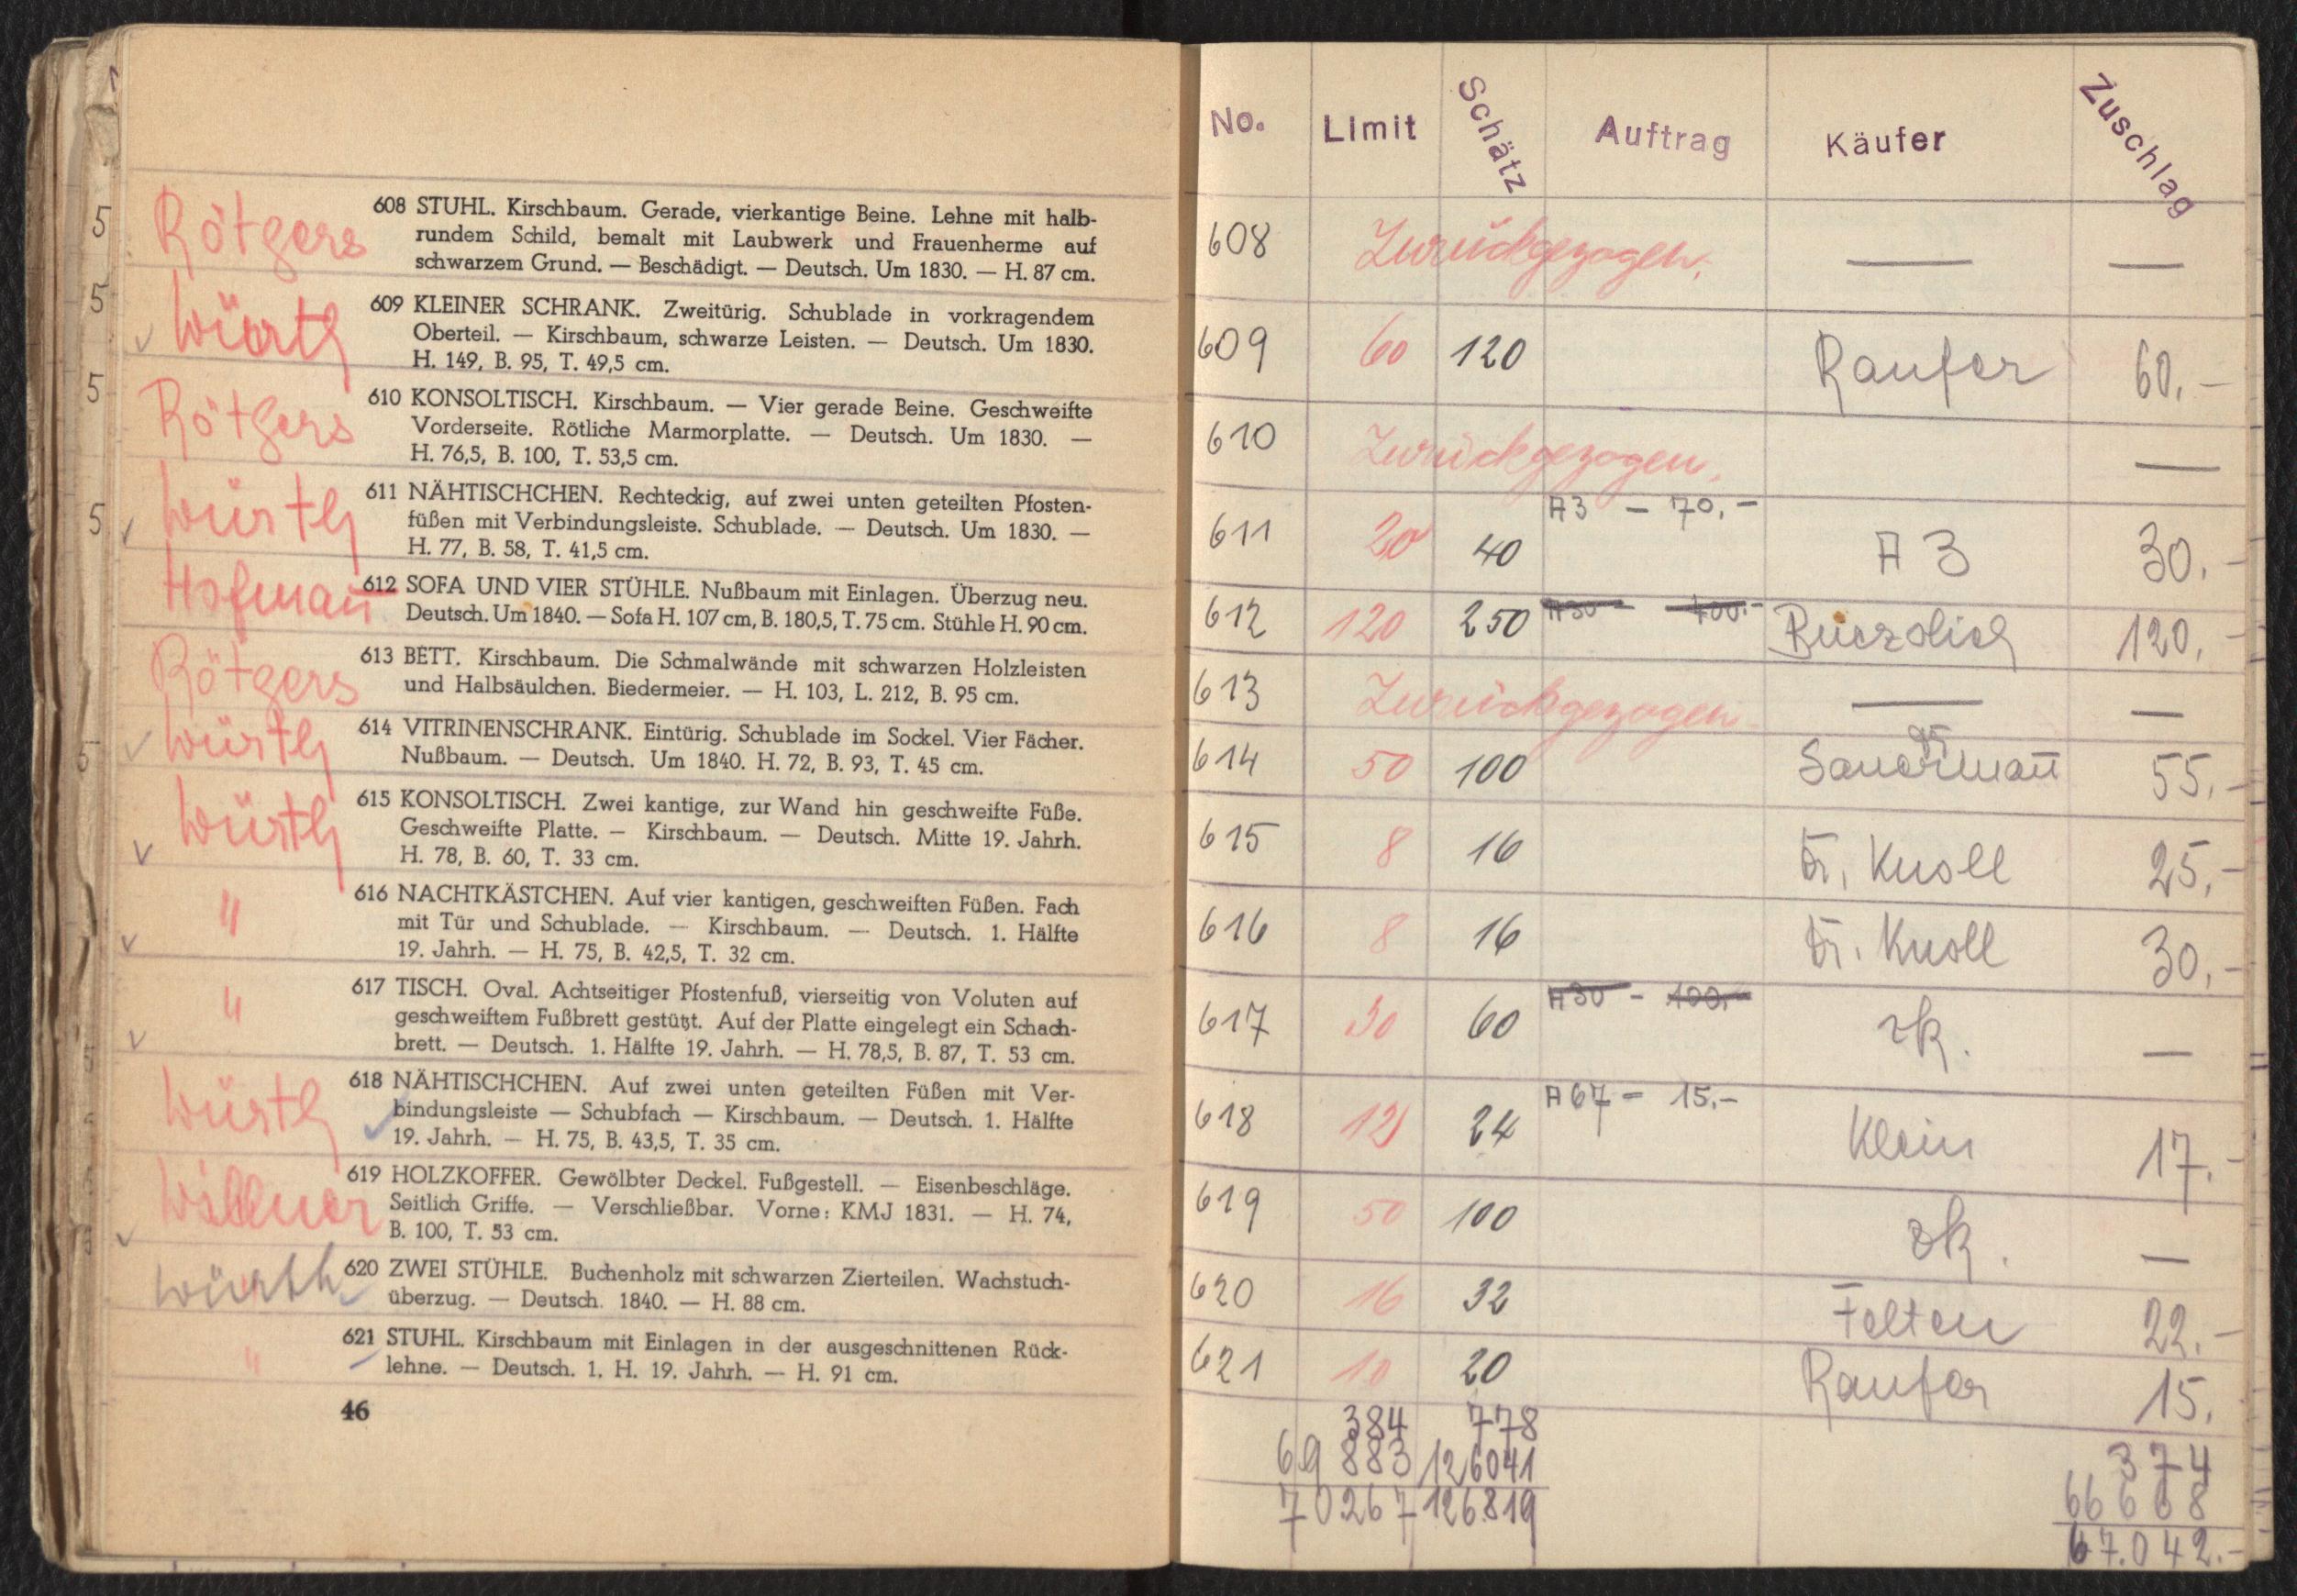 Rötgers
608 STUHL. Kirschbaum. Gerade, vierkantige Beine. Lehne mit halb-
rundem Schild, bemalt mit Laubwerk und Frauenherme auf
schwarzem Grund. — Beschädigt. — Deutsch. Um 1830. — H. 87 cm.
Würth
609 KLEINER SCHRANK. Zweitürig. Schublade in vorkragendem
Oberteil. — Kirschbaum, schwarze Leisten. — Deutsch. Um 1830.
H. 149, B. 95, T. 49,5 cm.
Rötgers
610 KONSOLTISCH. Kirschbaum. — Vier gerade Beine. Geschweifte
Vorderseite. Rötliche Marmorplatte. — Deutsch. Um 1830. —
H. 76,5, B. 100, T. 53,5 cm.
Würth
611 NÄHTISCHCHEN. Rechteckig, auf zwei unten geteilten Pfosten-
füßen mit Verbindungsleiste. Schublade. — Deutsch. Um 1830. —
H. 77, B. 58, T. 41,5 cm.
Hofmañ
612 SOFA UND VIER STÜHLE. Nußbaum mit Einlagen. Überzug neu.
Deutsch. Um 1840. — Sofa H. 107 cm, B. 180,5, T. 75 cm. Stühle H. 90 cm.
Rötgers
613 BETT. Kirschbaum. Die Schmalwände mit schwarzen Holzleisten
und Halbsäulchen. Biedermeier. — H. 103, L. 212, B. 95 cm.
Würth
614 VITRINENSCHRANK. Eintürig. Schublade im Sockel. Vier Fächer.
Nußbaum. — Deutsch. Um 1840. H. 72, B. 93, T. 45 cm.
Würth
615 KONSOLTISCH. Zwei kantige, zur Wand hin geschweifte Füße.
Geschweifte Platte. — Kirschbaum. — Deutsch. Mitte 19. Jahrh.
H. 78, B. 60, T. 33 cm.
"
616 NACHTKÄSTCHEN. Auf vier kantigen, geschweiften Füßen. Fach
mit Tür und Schublade. — Kirschbaum. — Deutsch. 1. Hälfte
19. Jahrh. — H. 75, B. 42,5, T. 32 cm.
"
617 TISCH. Oval. Achtseitiger Pfostenfuß, vierseitig von Voluten auf
geschweiftem Fußbrett gestützt. Auf der Platte eingelegt ein Schach-
brett. — Deutsch. 1. Hälfte 19. Jahrh. — H. 78,5, B. 87, T. 53 cm.
Würth
618 NÄHTISCHCHEN. Auf zwei unten geteilten Füßen mit Ver-
bindungsleiste — Schubfach — Kirschbaum. — Deutsch. 1. Hälfte
19. Jahrh. — H. 75, B. 43,5, T. 35 cm.
619 HOLZKOFFER. Gewölbter Deckel. Fußgestell. — Eisenbeschläge.
Seitlich Griffe. — Verschließbar. Vorne: KMJ 1831. — H. 74,
B. 100, T. 53 cm.
Würth
620 ZWEI STÜHLE. Buchenholz mit schwarzen Zierteilen. Wachstuch-
überzug. — Deutsch. 1840. — H. 88 cm.
"
621 STUHL. Kirschbaum mit Einlagen in der ausgeschnittenen Rück-
lehne. — Deutsch. 1. H. 19. Jahrh. — H. 91 cm.
46
No. Limit Schätz Auftrag Käufer Zuschlag
608 Zurückgezogen. — —
609 60 120 Raufer 60,-
610 Zurückgezogen. —
A3 — 70,-
611 20 40 A 3 30,-
612 120 250 120,-
613 Zurückgezogen — —
614 50 100 Sauermañ 55,-
615 8 16 Dr. Knoll 25,-
616 8 16 Dr. Knoll 30,-
A30 - 100,-
617 30 60 zk. —
A67 - 15,-
618 12 24 Klein 17,-
619 50 100 zk. —
620 16 32 Felten 22,-
621 10 20 Raufer 15,
384 778 374
69 883 126041 66 668
70267 126.819 67.042.-